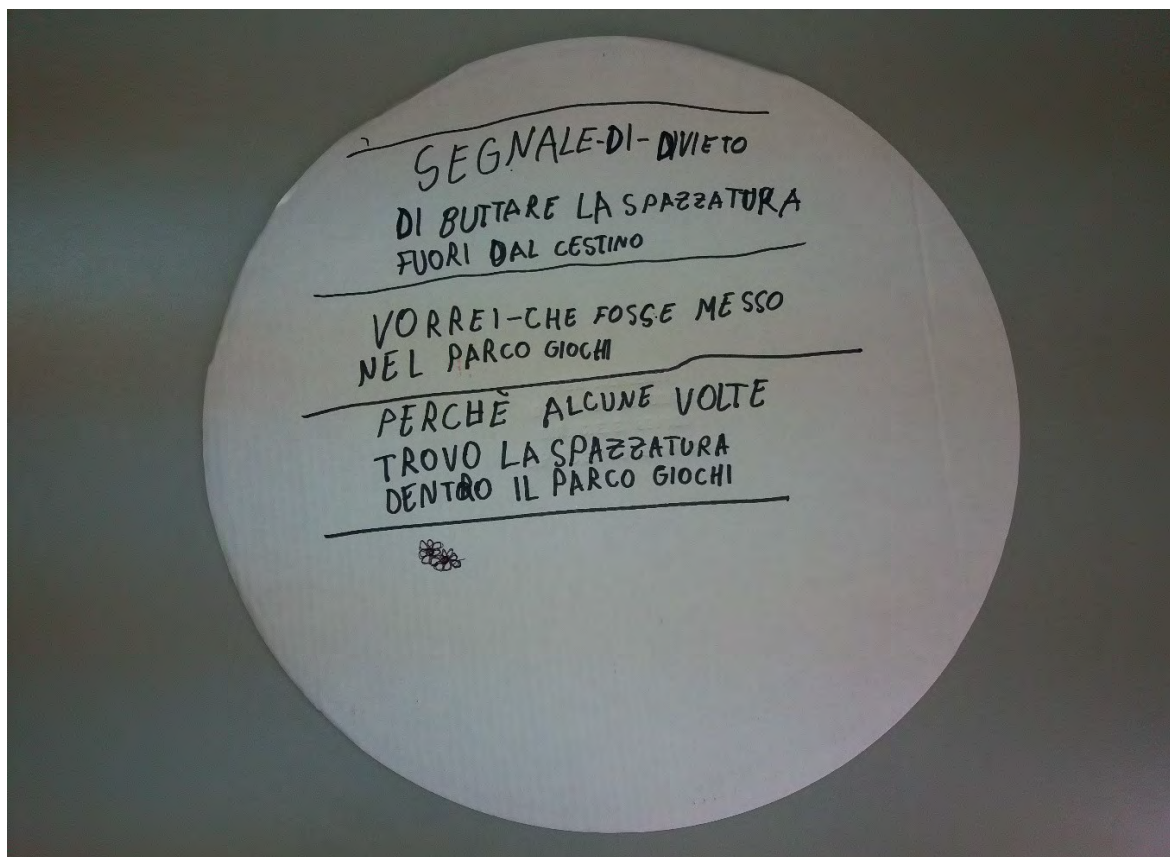 SEGNALE-DI-DIVIETO
DI BUTTARE LA SPAZZATURA
FUORI DAL CESTINO
VORREI-CHE FOSSE MESSO
NEL PARCO GIOCHI
PERCHÈ ALCUNE VOLTE
TROVO LA SPAZZATURA
DENTRO IL PARCO GIOCHI